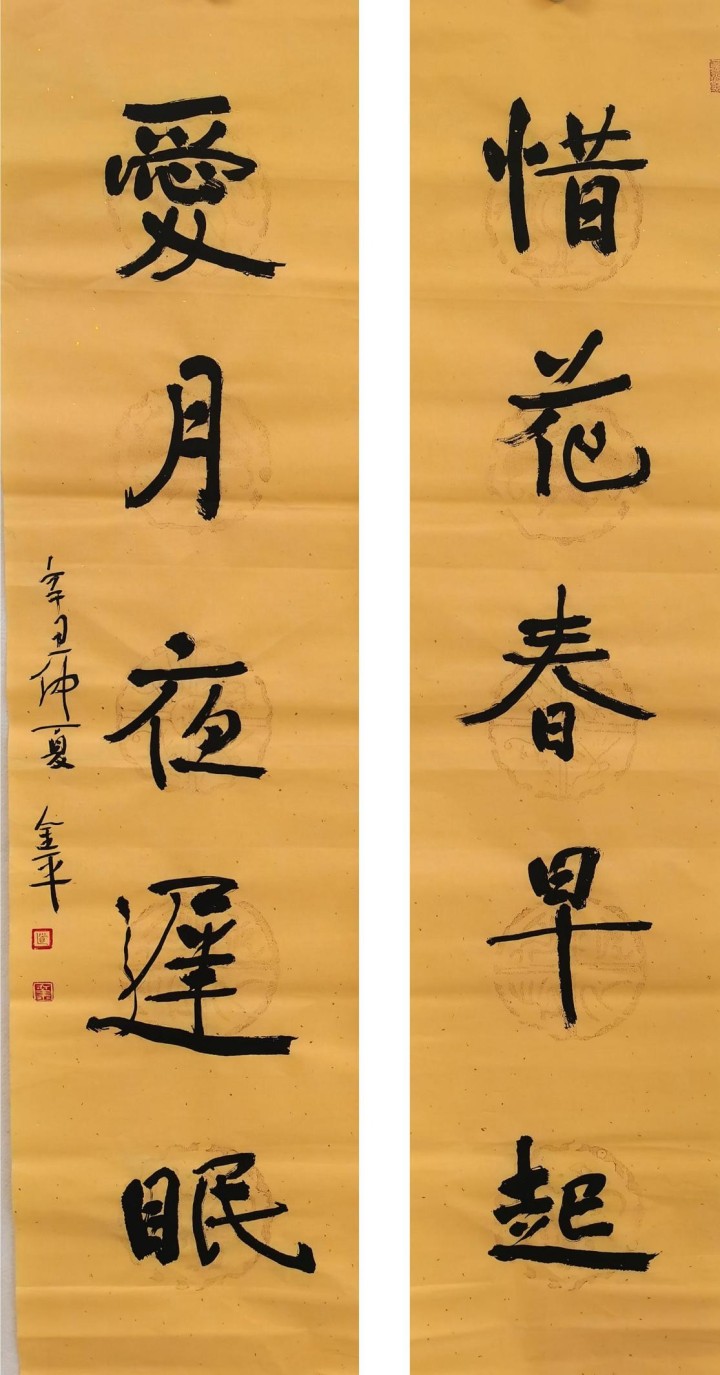 惜花春早起
愛月夜遲眠
辛丑仲夏 金平